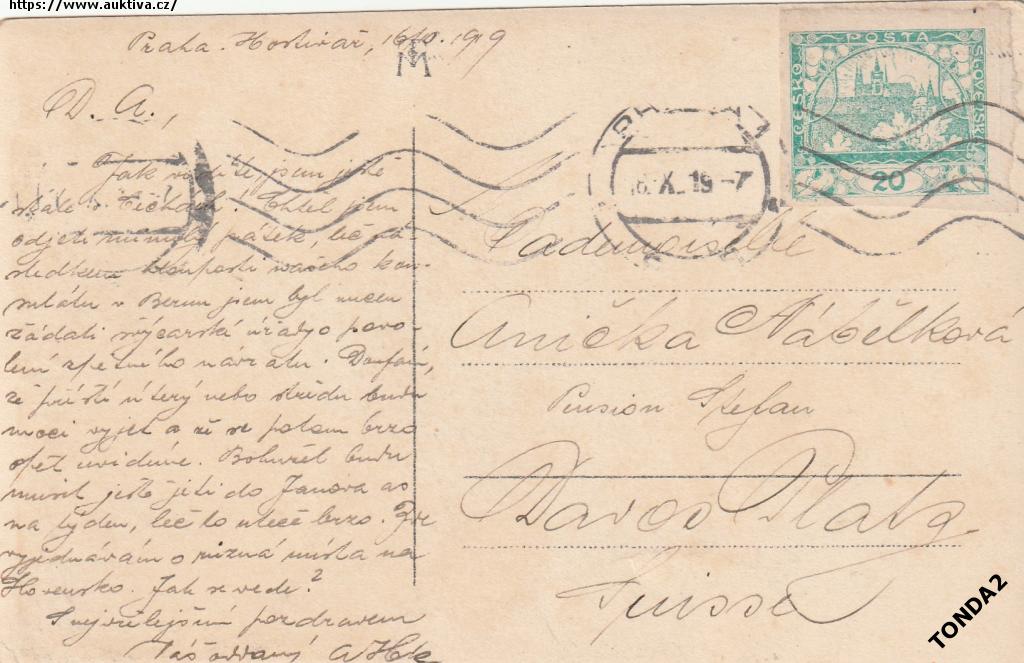 https://www.auktiva.cz/
Praha. Hostivař, 16/X. 1919
M
POSTA
ČESKO
SLOVENSKÁ
20
D. A.,
Jak vidíte, jsem ještě
stále v Čechách! Chtěl jsem
odjeti minulý pátek, leč ná-
sledkem našeho kon-
sulátu v Bernu jsem byl nucen
žádati švýcarské úřady o povo-
lení zpětného návratu. Doufám,
že příští úterý nebo středu budu
moci vyjet a že se potom brzo
opět uvidíme. Bohužel budu
musit ještě jeti do Janova as
na týden, leč to uteče brzo.
vyjednávám o různá místa na
Slovensko. Jak se vede?
S nejvřelejším pozdravem
Váš oddaný
X. 19-7
Mademoiselle
Anička Nábělková
Pension Stefan
Davos Platz
Suisse
TONDA2